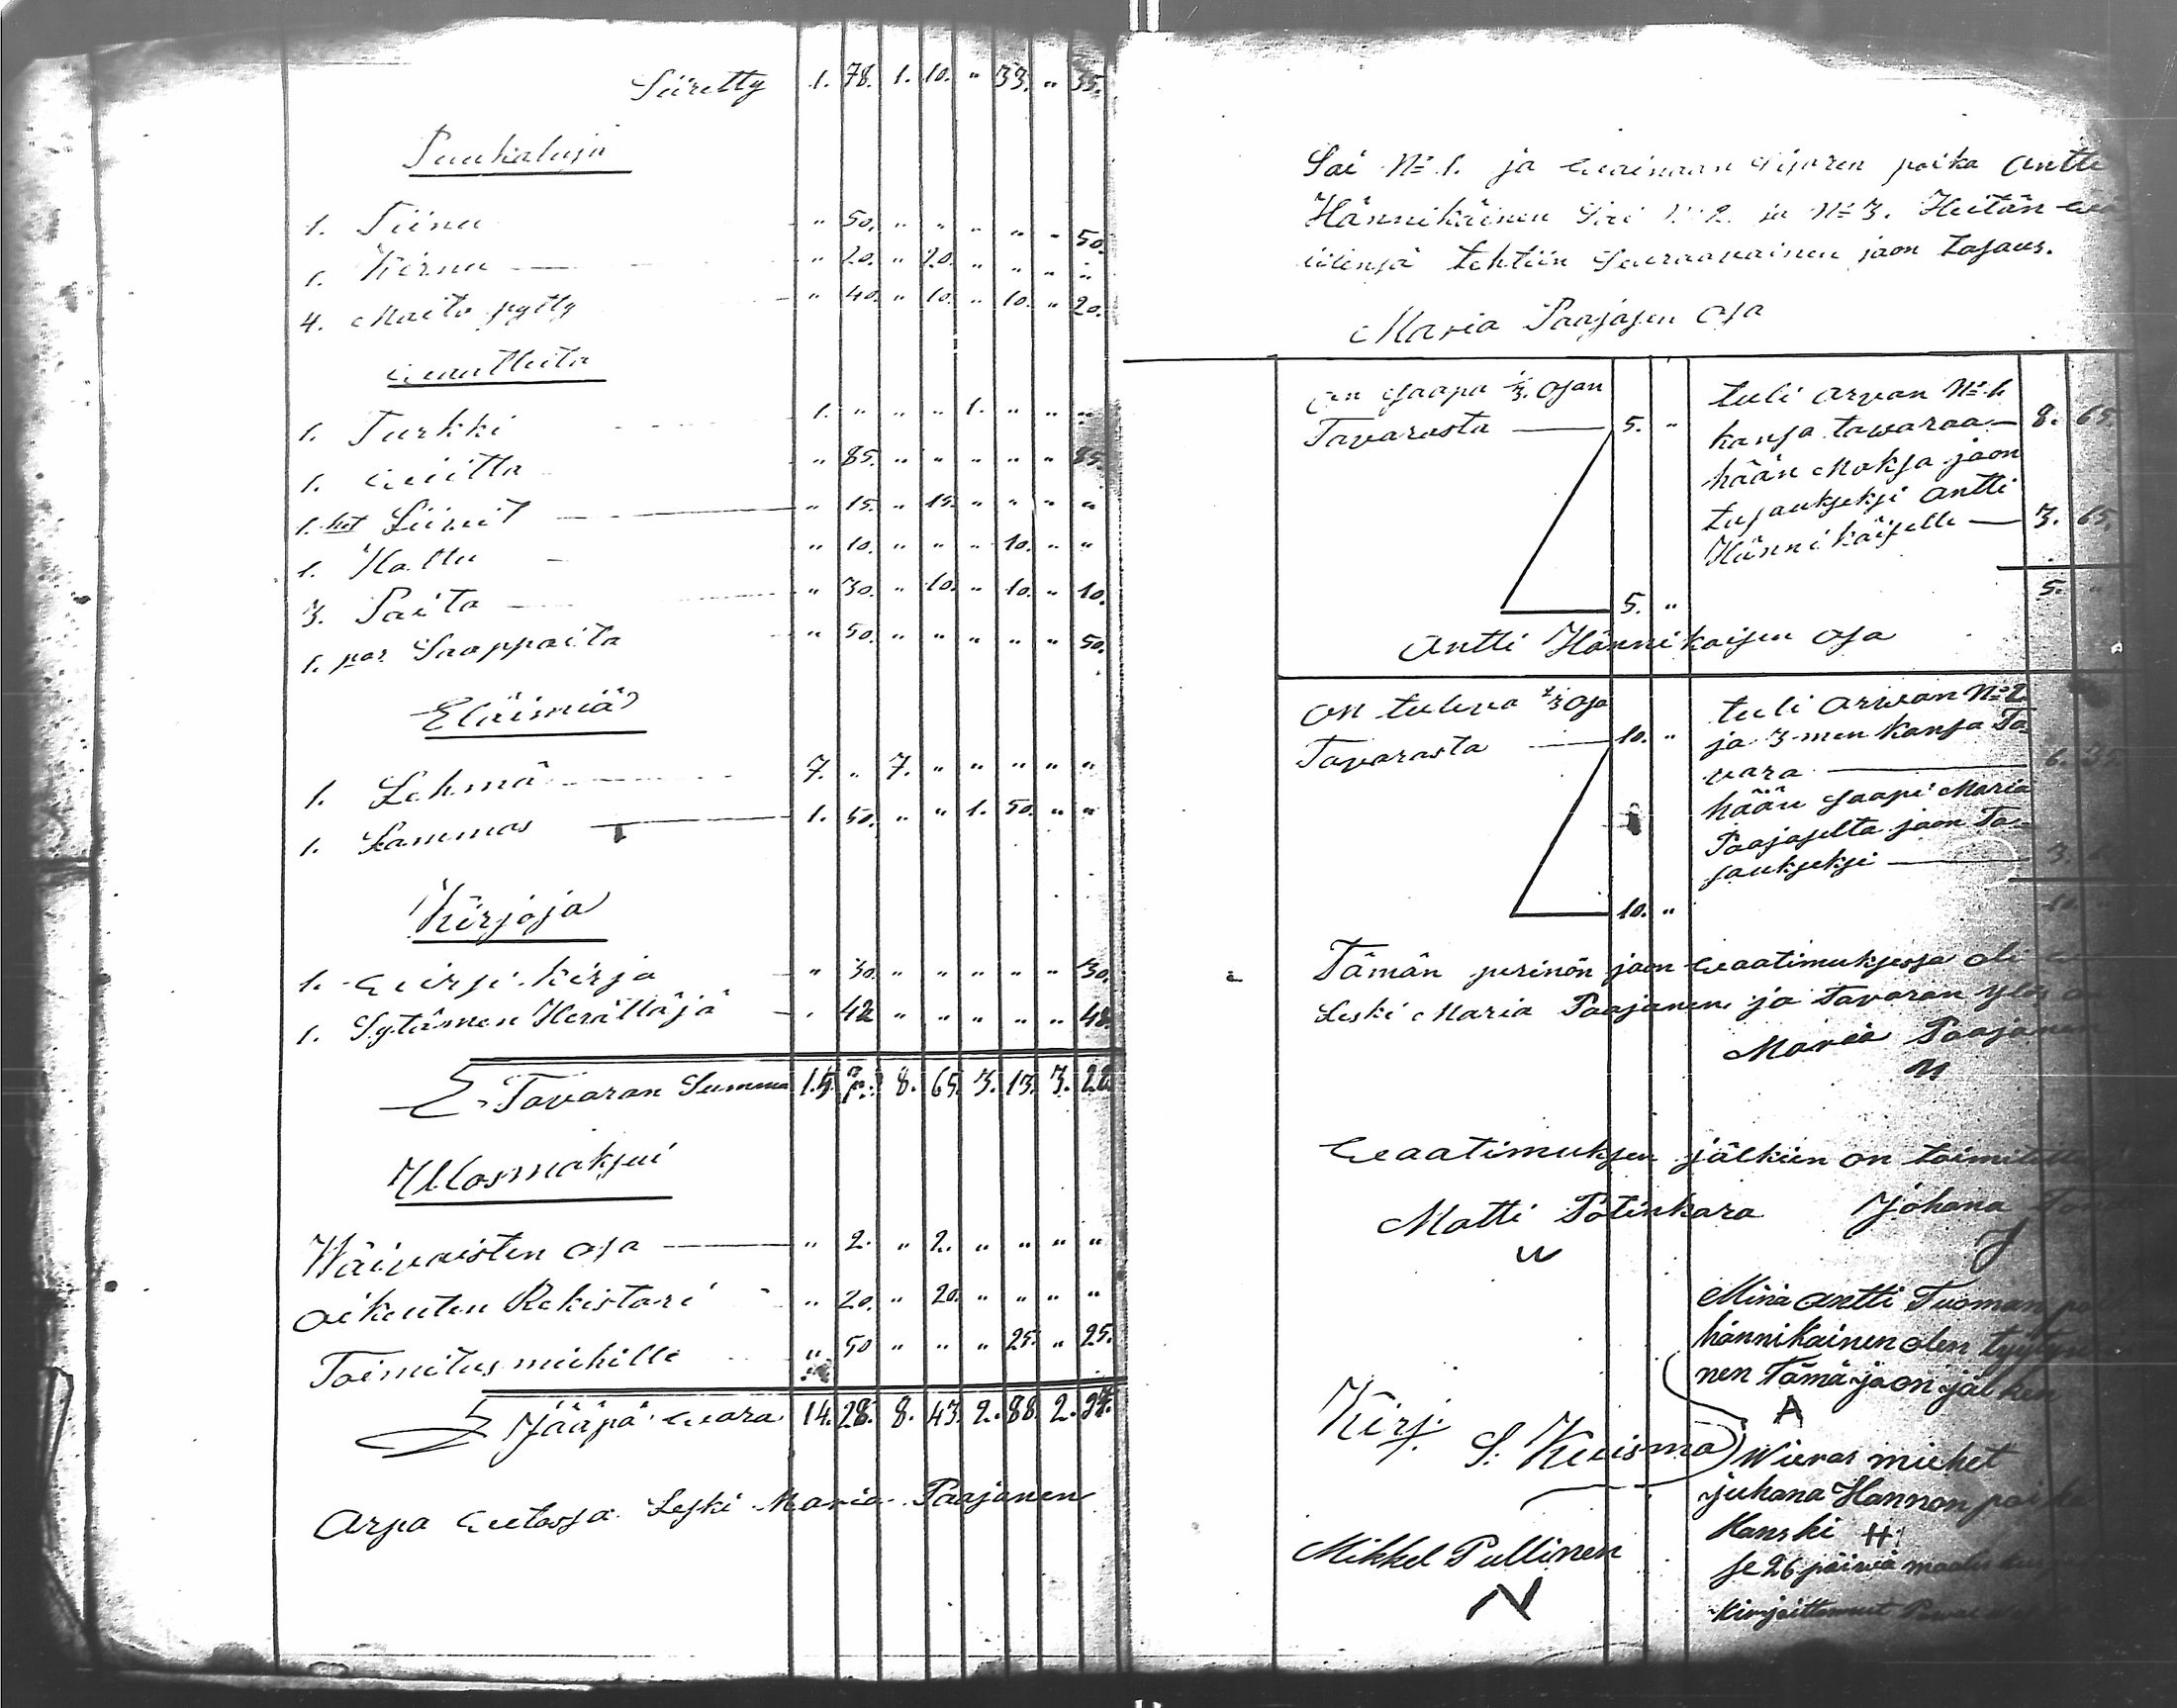 Siiretty 1. 78. 1. 10. " 33. " 35.
Puukaluja
1. Tiinu " 50. " " " " " 50.
1. Kirnu — " 20. " 20. " " " "
4. Maito pytty " 40. " 10. " 10. " 20.
Waatteita
1. Turkki 1. " " " 1. " " "
1. Wiitta " 85. " " " " " 85.
1. Liivit — " 15. " 15. " " " "
1. Hattu - " 10. " " " 10. " "
3. Paita — " 30. " 10. " 10. " 10.
1. par Saappaita " 50. " " " " " 50.
Eläimiä
1. Lehmä — 7. " 7. " " " " "
1. Lammas — 1. 50. " " 1. 50. " "
Kirjoja
1. Wirsi kirja " 30. " " " " " 30.
1. Sytämen Herättäjä " 42 " " " " " 42.
Tavaran Summa 15. 8. 65. 3. 13. 3. 22.
Ulosmaksui
Wäivaisten osa — " 2. " 2. " " " "
oikeuten Rekistari " 20. " 20. " " " "
Toimitus miehille " 50 " " " 25. " 25.
Jääpä Wara 14. 28. 8. 43. 2. 88. 2. 97.
Arpa Wetossa Leski Maria Paajanen
Sai No 1. ja Wainaan Sisaren poika Antti
Hännikäinen Sai No 2. ja No 3. Heitän
wälinsä tehtiin Seuraavainen jaon tasaus.
Maria Paajasen osa
on saapa 1/3. osan
Tavarasta — 5. "
tuli arvan No 1.
kansa tawaraa — 8. 65.
hään Maksa jaon
tasaukseksi Antti
Hännikäiselle — 3. 65.
5. " 5. "
Antti Hännikäisen osa
on tuleva 2/3 osa
Tavarasta — 10. "
tuli arwan No 2.
ja 3-men kansa Ta-
vara — 6. 35.
hään saapi Maria
Paajaselta jaon Ta-
saukseksi — 3.
10. " 10.
Tämän perinön jaon Waatimuksessa oli
Leski Maria Paajanen ja tavaran ylös
Maria Paajanen
Waatimuksen jälkiin on toimitettu
Matti Pätinkara Johana
J
Minä antti Tuoman
hännikäinen olen
nen Tämä jaon jäl ken
A
Kirj. S. Kuisma
Wieras miehet
juhana Hannon poika
Hanski H
Mikkel Pullinen
N
se 26 päivä
kirjoittanut